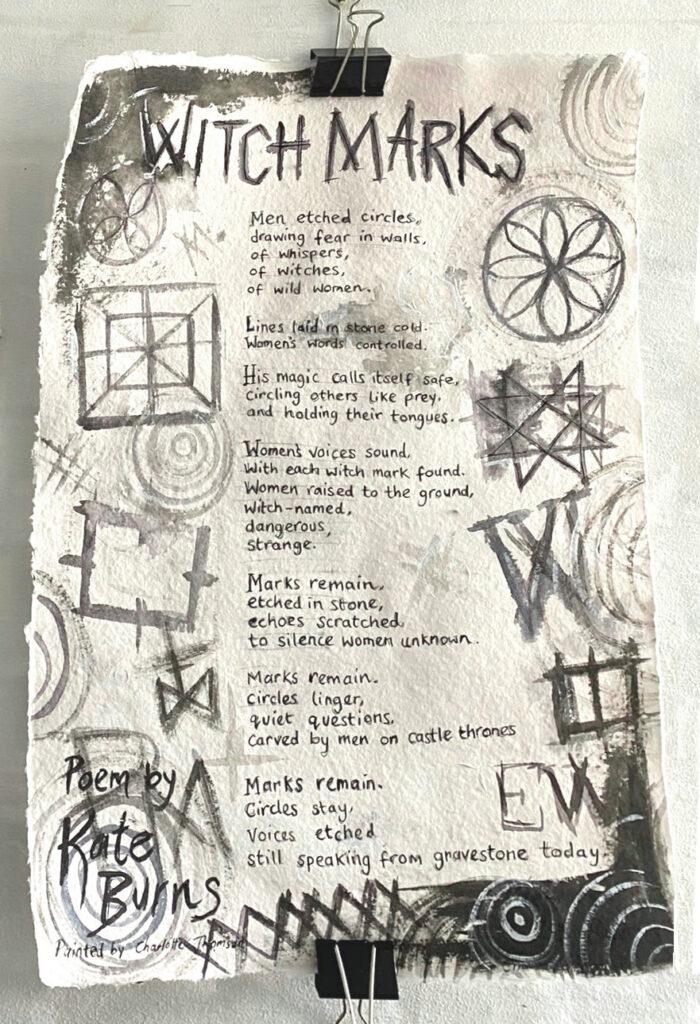 WITCH MARKS
Men etched circles,
drawing fear in walls,
of whispers,
of witches,
of wild women.
Lines laid in stone cold.
Women's words controlled.
His magic calls itself safe,
Circling others like prey.
and holding their tongues.
Women's voices sound,
With each witch mark found.
Women raised to the ground,
witch-named,
dangerous,
strange.
Marks remain,
etched in stone,
echoes scratched
to silence women unknown.
Marks remain.
Circles linger,
quiet questions,
Carved by men on castle thrones
Marks remain.
Circles stay,
Voices etched
still speaking from gravestone today.
EW
Poem by
Kate
Burns
Painted by Charlotte Thomson